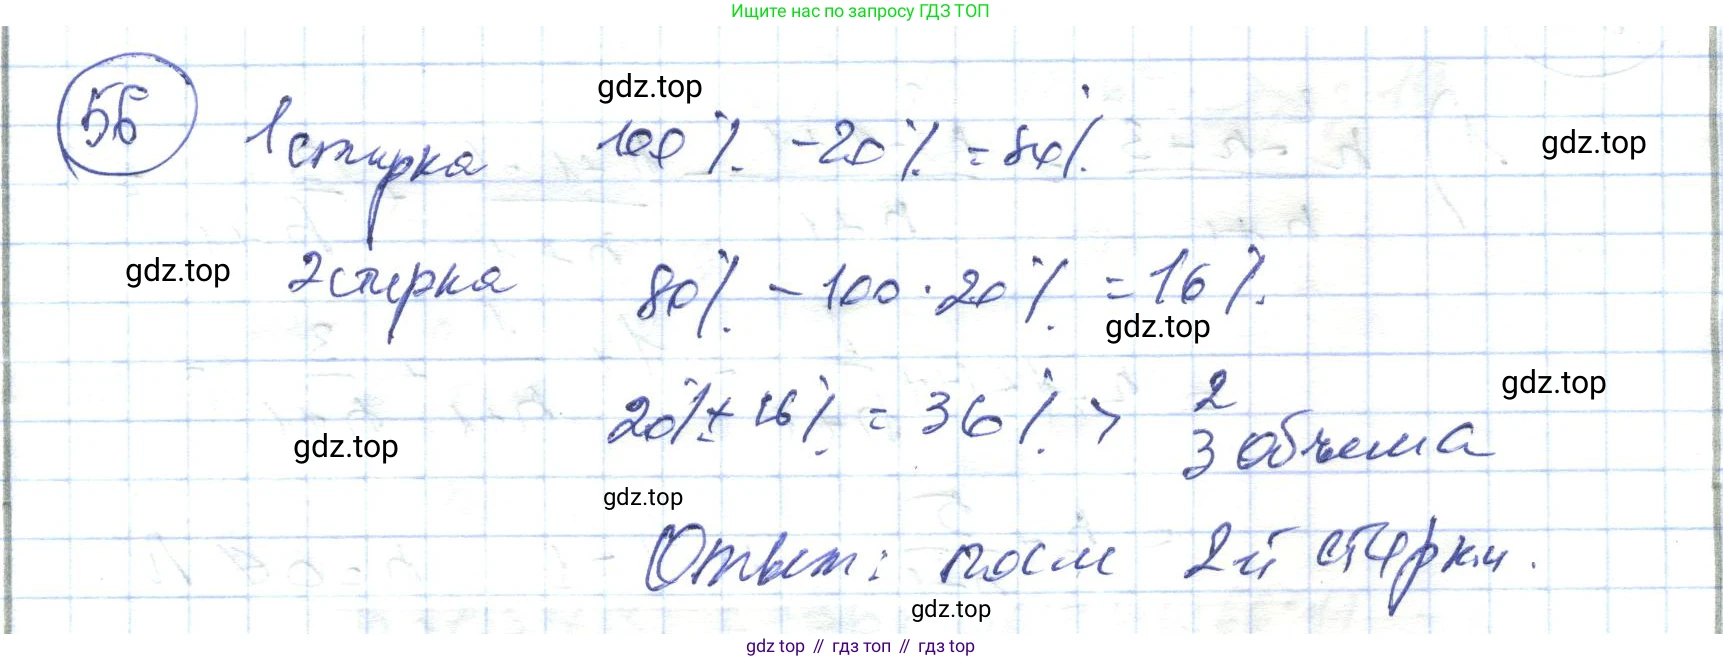 Ищите нас по запросу ГДЗ ТОП
gdz.top
56 1 стирка 100% - 20% = 80%
gdz.top
gdz.top 2 стирка 80% - 100 · 20% = 16%
gdz.top
20% + 16% = 36% > 2
gdz.top
gdz.top 3 объема
gdz.top
Ответ: после 2й стирки.
gdz.top
gdz top // гдз топ // gdz top